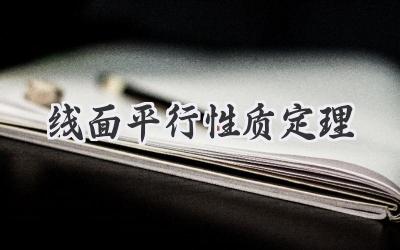 线面平行性质定理